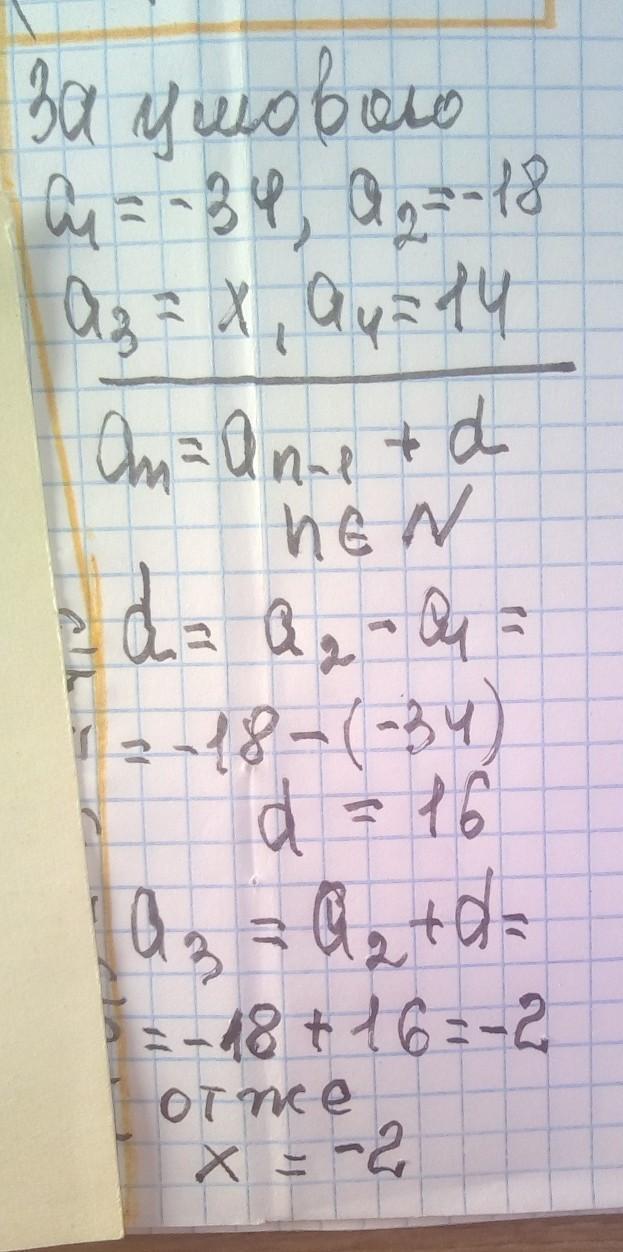 За умовою
a₁ = -34, a₂ = -18
a₃ = x, a₄ = 14
aₙ = aₙ₋₁ + d
n ∈ N
d = a₂ - a₁ =
= -18 - (-34)
d = 16
a₃ = a₂ + d =
= -18 + 16 = -2
отже
x = -2